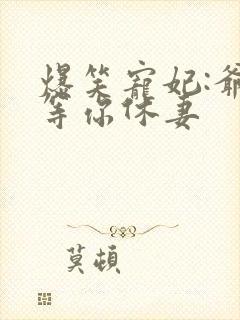 爆笑寵妃:爺
等你休妻
莫顿